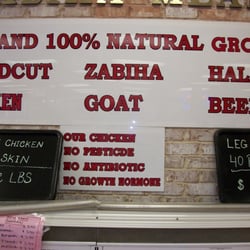 AND 100% NATURAL GRO
DCUT ZABIHA HAL
EN GOAT BEE
OUR CHICKEN
NO PESTICDE
NO ANTIBIOTIC
NO GROWTH HORMONE
CHICKEN
SKIN
LBS
LEG
40
$